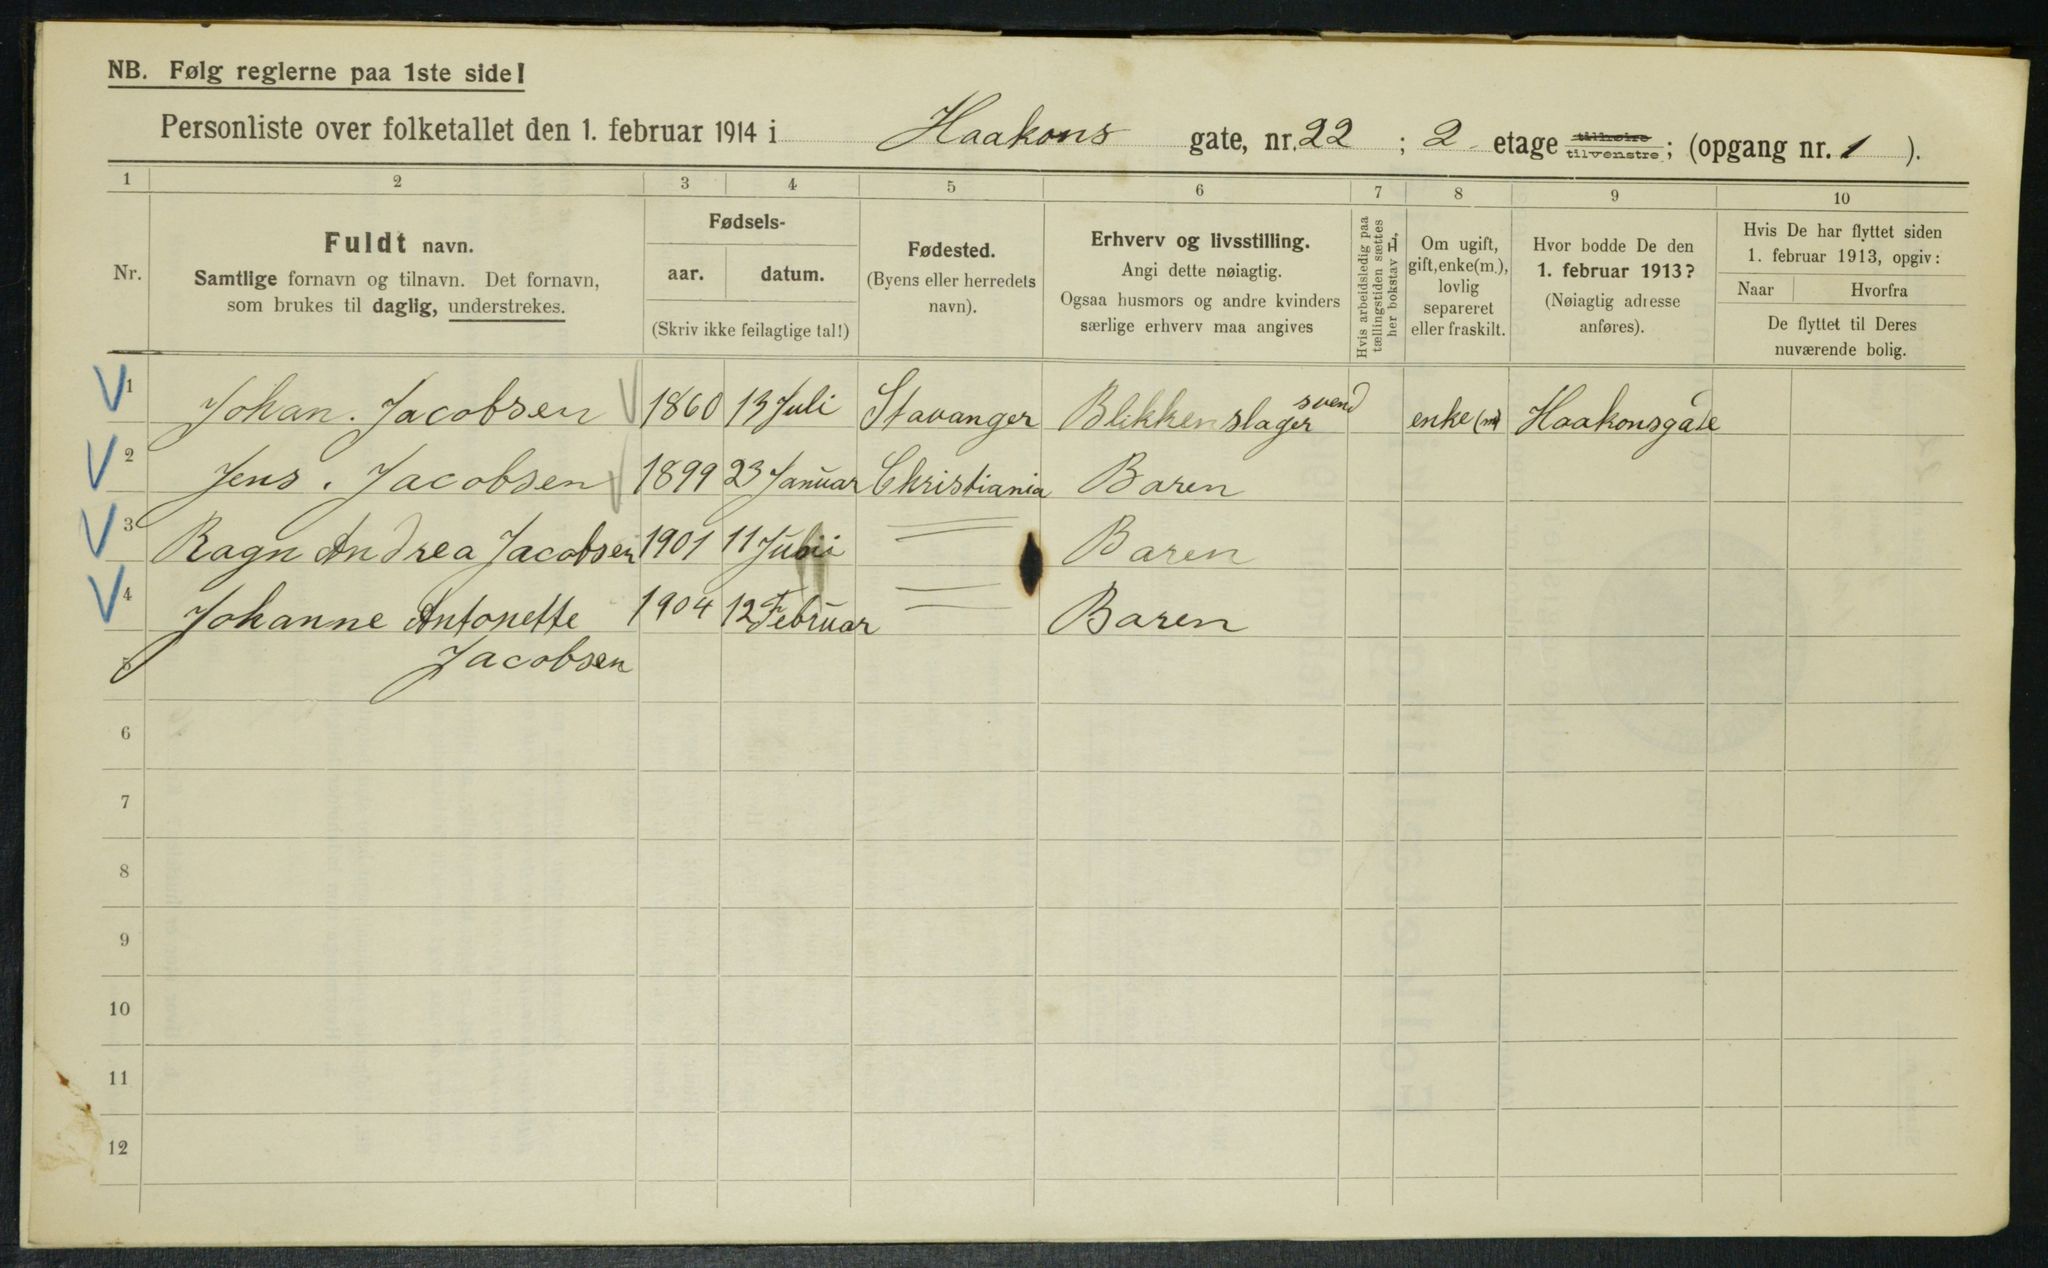 NB. Følg reglerne paa 1ste side!
Personliste over folketallet den 1. februar 1914 i Haakons gate, nr. 22 ; 2 etage tilhøire tilvenstre ; (opgang nr. 1 ).
1 2 3 4 5 6 7 8 9 10
Nr.
Fuldt navn.
Samtlige fornavn og tilnavn. Det fornavn,
som brukes til daglig, understrekes.
Fødsels-
aar. datum.
(Skriv ikke feilagtige tal!)
Fødested.
(Byens eller herredets
navn).
Erhverv og livsstilling.
Angi dette nøiagtig.
Ogsaa husmors og andre kvinders
særlige erhverv maa angives
Hvis arbeidsledig paa
tællingstiden sættes
her bokstav L.
Om ugift,
gift, enke(m.),
lovlig
separeret
eller fraskilt.
Hvor bodde De den
1. februar 1913?
(Nøiagtig adresse
anføres).
Hvis De har flyttet siden
1. februar 1913, opgiv:
Naar Hvorfra
De flyttet til Deres
nuværende bolig.
1 Johan. Jacobsen 1860 13 Juli Stavanger Blikkenslager svend enke (m) Haakonsgade
2 Jens. Jacobsen 1899 23 Januar Christiania Baren
3 Ragn Andrea Jacobsen 1901 11 Baren
4 Johanne Antonette 1904 12 Februar Baren
5 Jacobsen
6
7
8
9
10
11
12